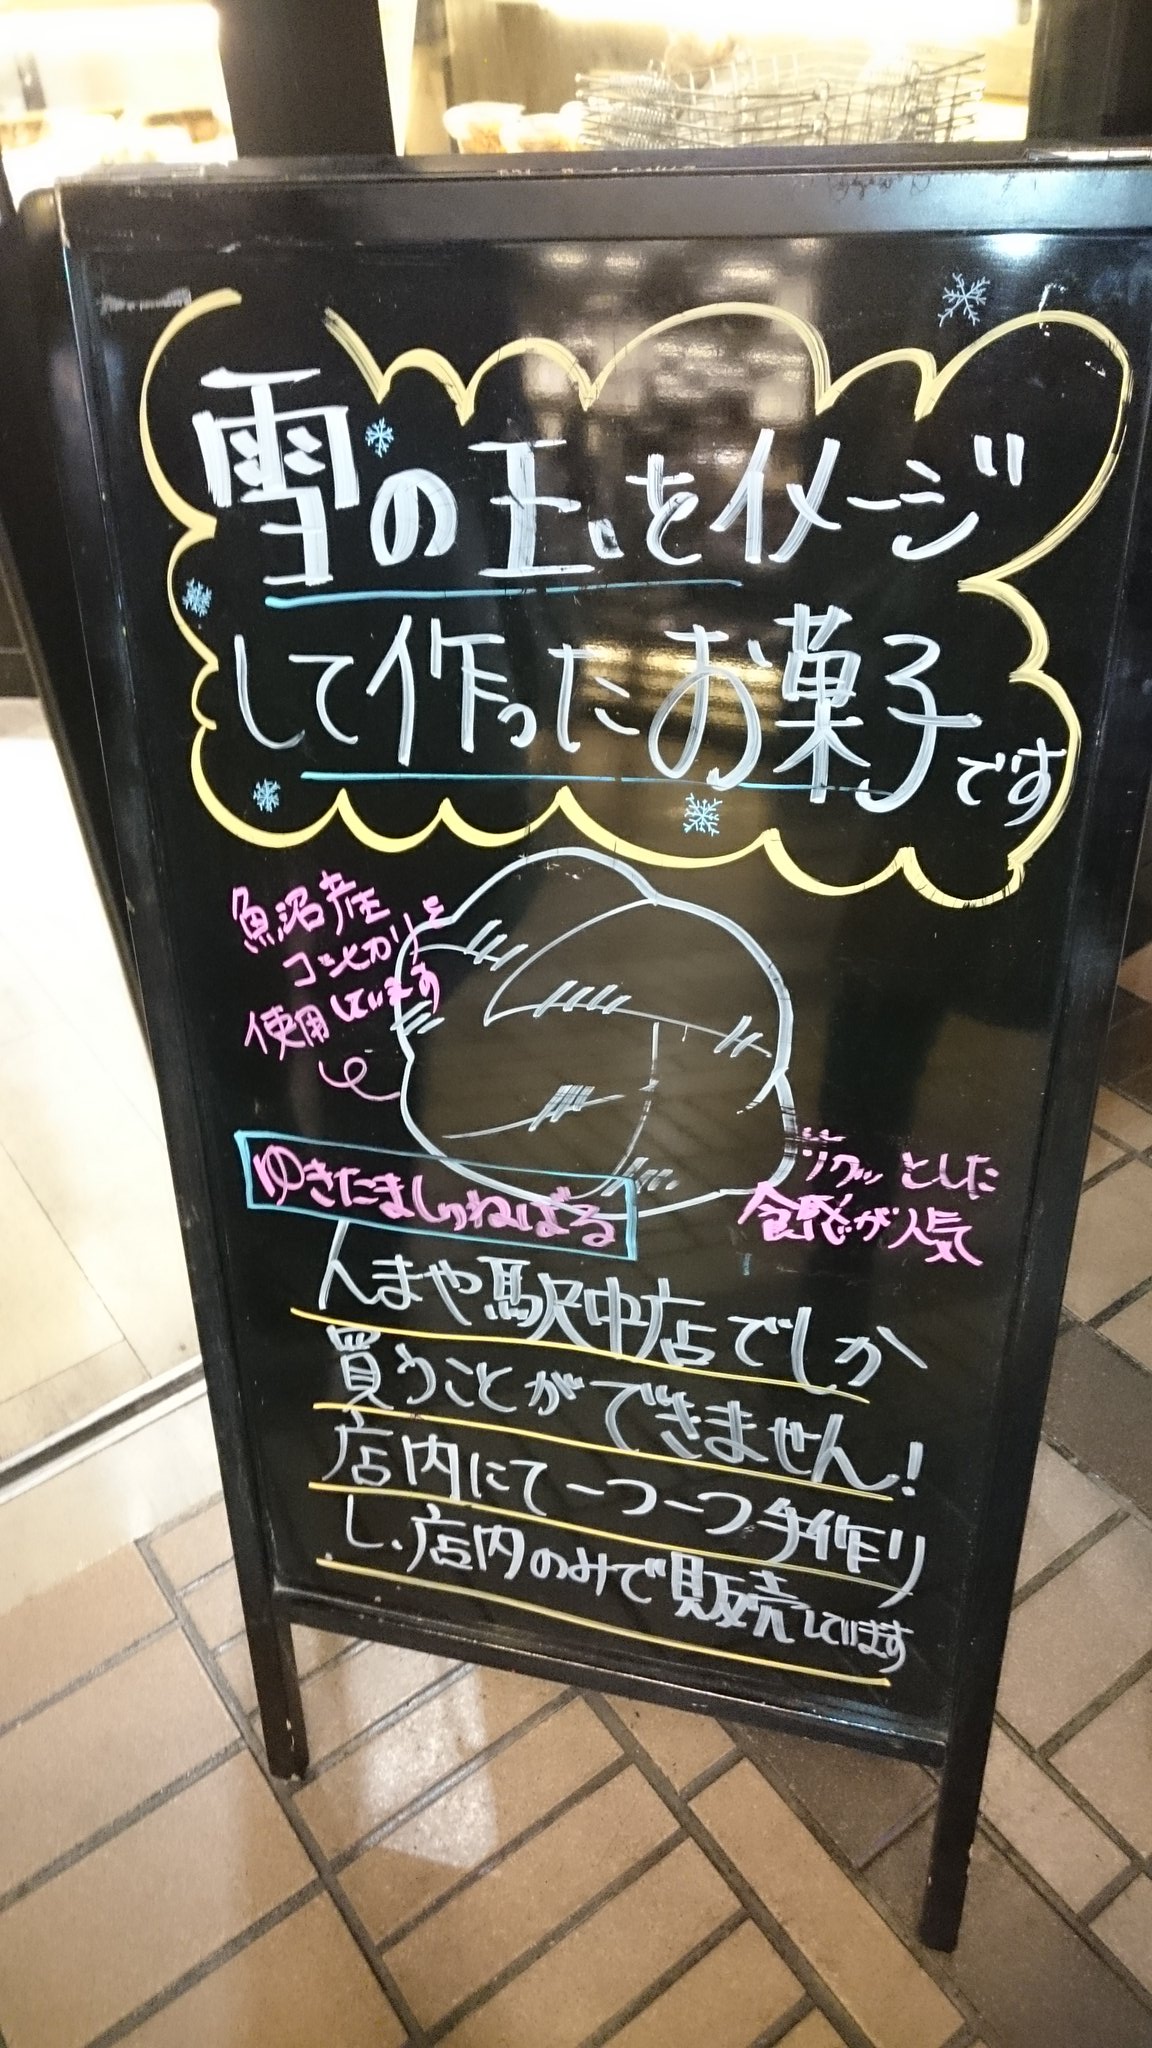 雪の玉をイメージ
して作ったお菓子です
魚沼産
コシヒカリを
使用しています
ゆきたましゅねばる
ザクッとした
食感が人気
んまや駅中店でしか
買うことができません!
店内にて一つ一つ手作り
し、店内のみで販売しています